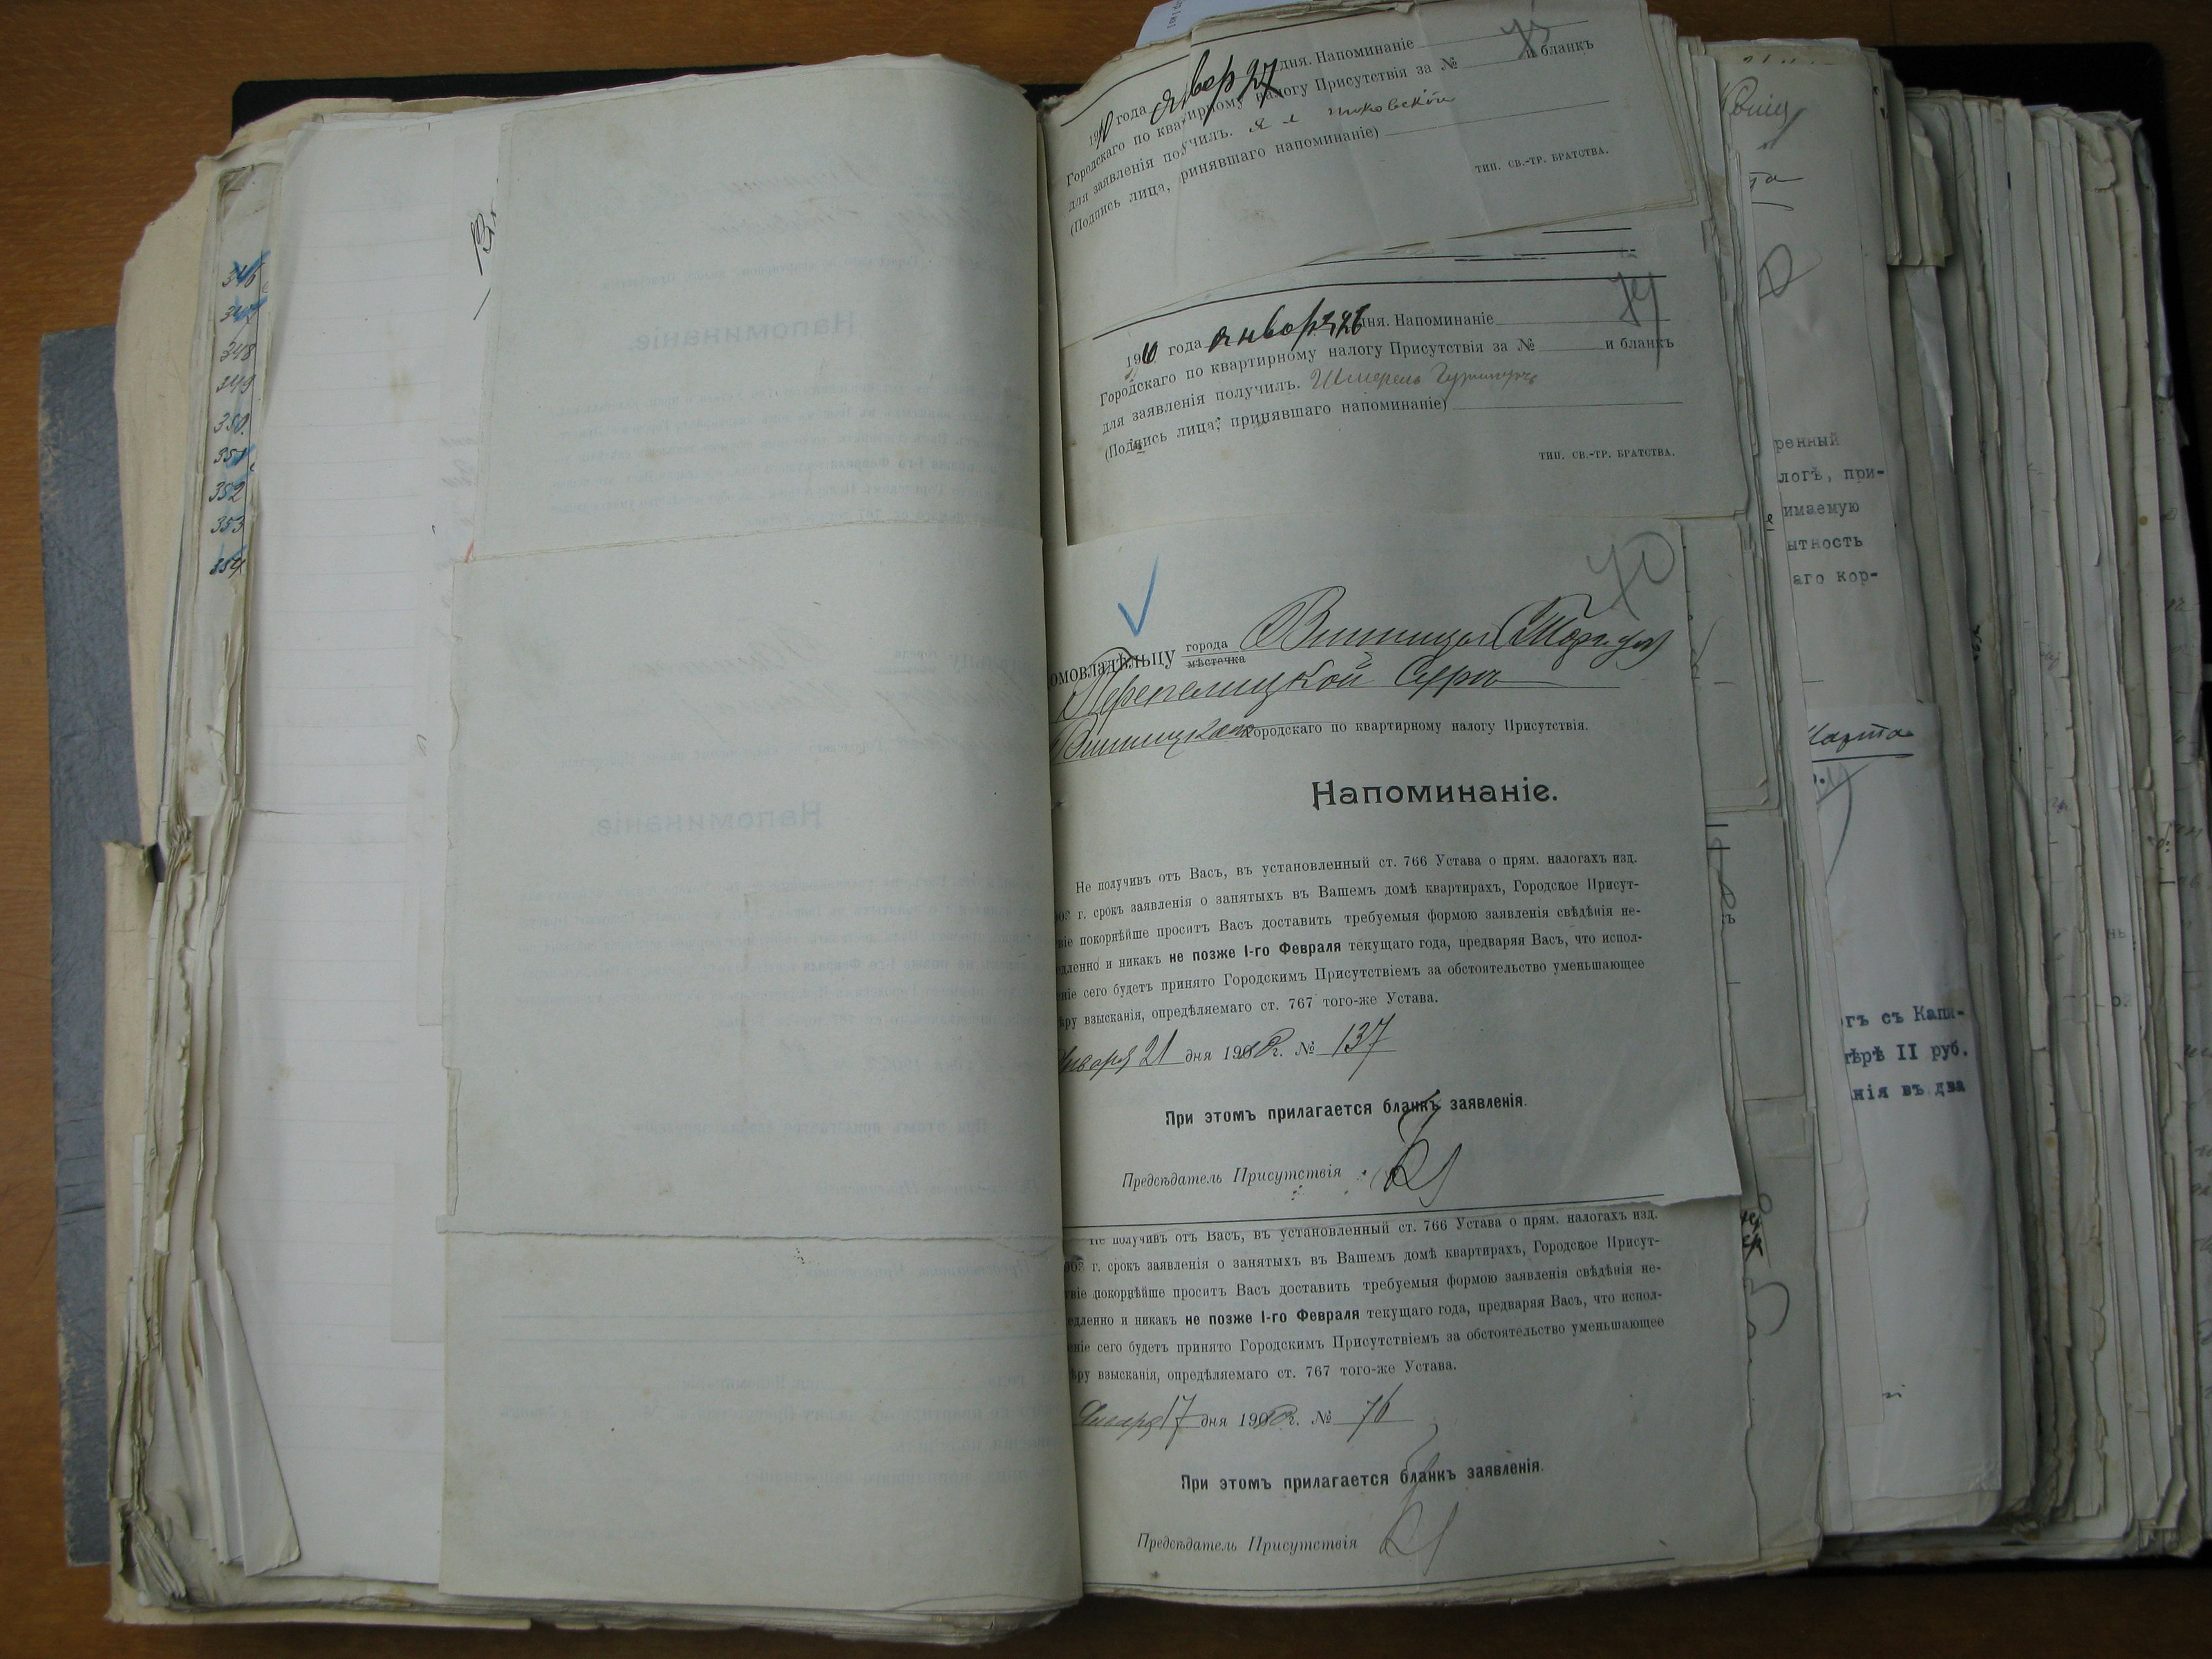 346
347
348
349
350
351
352
353
354
Вı
1910 года Январ 27 дня. Напоминаніе
Городскаго по квартирному налогу Присутствія за № и бланкъ
для заявленія получилъ.
(Подпись лица, принявшаго напоминаніе)
ТИП. СВ.-ТР. БРАТСТВА.
1910 года Январ 26 дня. Напоминаніе
Городскаго по квартирному налогу Присутствія за № и бланкъ
для заявленія получилъ. Шмерель
(Подпись лица, принявшаго напоминаніе)
ТИП. СВ.-ТР. БРАТСТВА.
70
омовладѣльцу города мѣстечка Винницы
Перепелицкой Суры
Винницкаго Городскаго по квартирному налогу Присутствія.
Напоминаніе.
Не получивъ отъ Васъ, въ установленный ст. 766 Устава о прям. налогахъ изд.
г. срокъ заявленія о занятыхъ въ Вашемъ домѣ квартирахъ, Городское Присут-
ніе покорнѣйше проситъ Васъ доставить требуемыя формою заявленія свѣдѣнія не-
дленно и никакъ не позже 1-го Февраля текущаго года, предваряя Васъ, что испол-
ніе сего будетъ принято Городскимъ Присутствіемъ за обстоятельство уменьшающее
ѣру взысканія, опредѣляемаго ст. 767 того-же Устава.
Января 21 дня 1910 г. № 137
При этомъ прилагается бланкъ заявленія.
Предсѣдатель Присутствія
Не получивъ отъ Васъ, въ установленный ст. 766 Устава о прям. налогахъ изд.
г. срокъ заявленія о занятыхъ въ Вашемъ домѣ квартирахъ, Городское Присут-
твіе покорнѣйше проситъ Васъ доставить требуемыя формою заявленія свѣдѣнія не-
едленно и никакъ не позже 1-го Февраля текущаго года, предваряя Васъ, что испол-
еніе сего будетъ принято Городскимъ Присутствіемъ за обстоятельство уменьшающее
ѣру взысканія, опредѣляемаго ст. 767 того-же Устава.
Января 17 дня 1910 г. № 76
При этомъ прилагается бланкъ заявленія.
Предсѣдатель Присутствія
ренный
логѣ, при-
имаемую
ытность
аго кор-
Карта
огъ съ Капи-
мѣрѣ II руб.
нія въ два